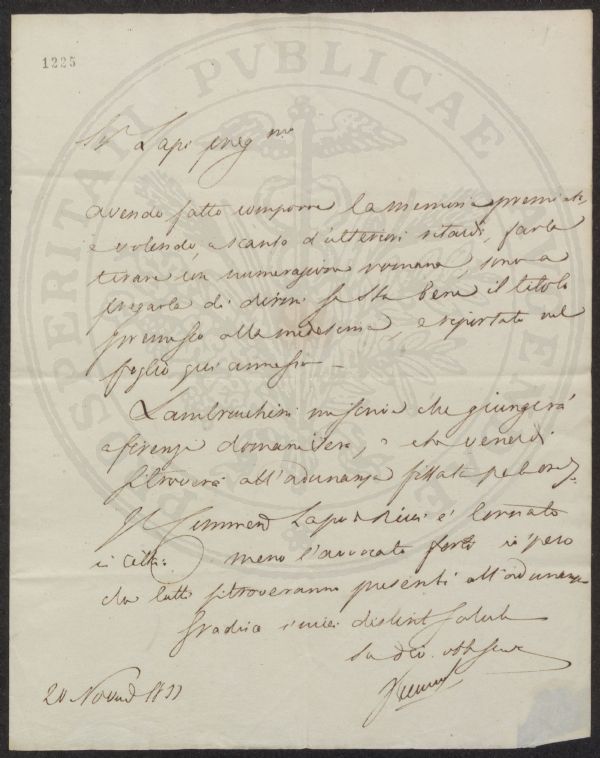 1225
Sr Lapi preg mo
avendo fatto comporre la memoria premiata,
e volendo, a scanso d'ulteriori ritardi, farla
tirare con numerazione romana, sono a
pregarla di dirmi se sta bene il titolo
premesso alla medesima, e riportato nel
foglio qui annesso —
Lambruschini mi scrive che giungerà
a Firenze domani sera, e che venerdì
si troverà all'adunanza fissata per le ore 7.
Il Commend Lapo de Ricci è tornato
in Città: meno l'avvocato io spero
che tutti si troveranno presenti all'adunanza
Gradisca i miei distinti saluti
Suo obb servo
20 Novemb 1833
PROSPERITATI PVBLICAE